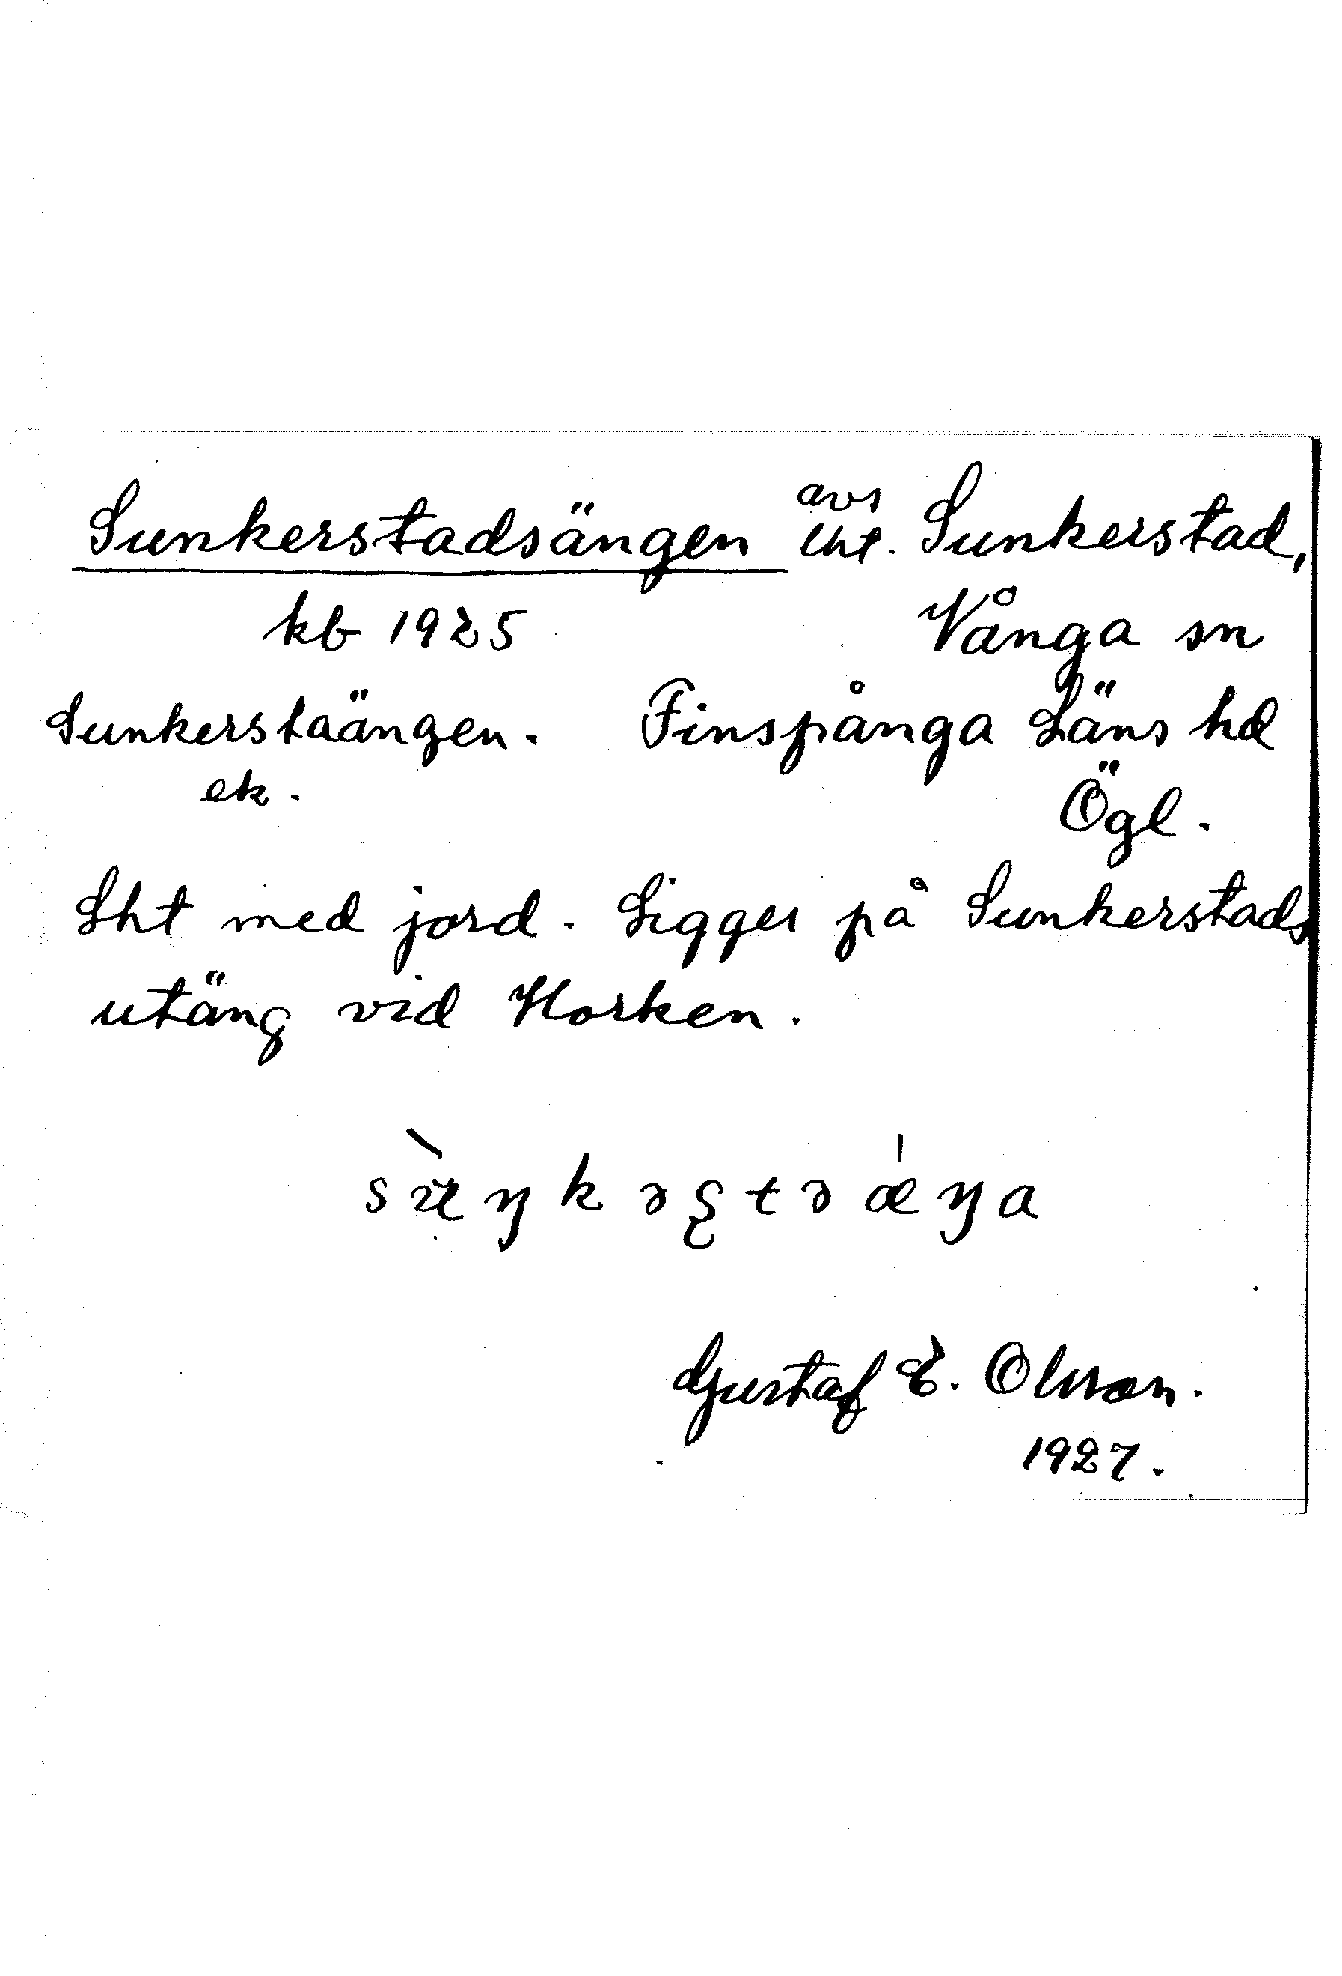 Sunkerstadsängen avs lht. Sunkerstad,
kb 1925 Vånga sn
Sunkerstaängen. Finspånga Läns hd
ek. Ögl.
Lht med jord. Ligger på Sunkerstads
utäng vid Horken.
Gustaf E. Olsson.
1927.